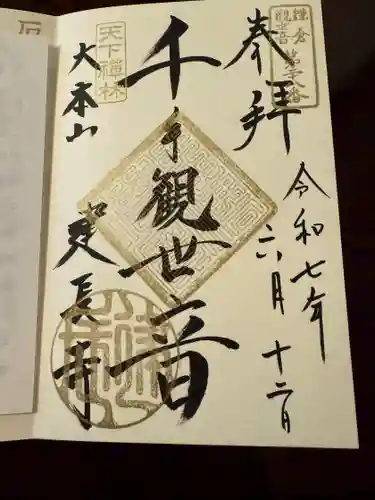 鎌倉
観音
第二十八番
奉拝
令和七年
六月十二日
千手観世音
天下禅林
大本山
建長寺